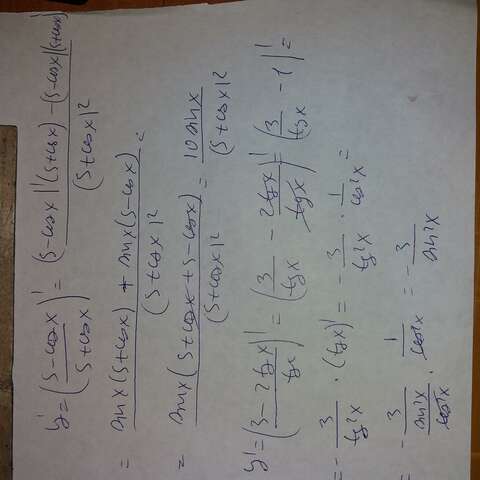 y' = ((5-cosx)/(5+cosx))' = ((5-cosx)'(5+cosx) - (5-cosx)(5+cosx)')/(5+cosx)²
= (sinx(5+cosx) + sinx(5-cosx))/(5+cosx)² =
= (sinx(5+cosx+5-cosx))/(5+cosx)² = 10sinx/(5+cosx)²
y' = ((3-2tgx)/tgx)' = (3/tgx - 2tgx/tgx)' = (3/tgx - 1)' =
= -3/tg²x · (tgx)' = -3/tg²x · 1/cos²x =
= -3/(sin²x/cos²x) · 1/cos²x = -3/sin²x